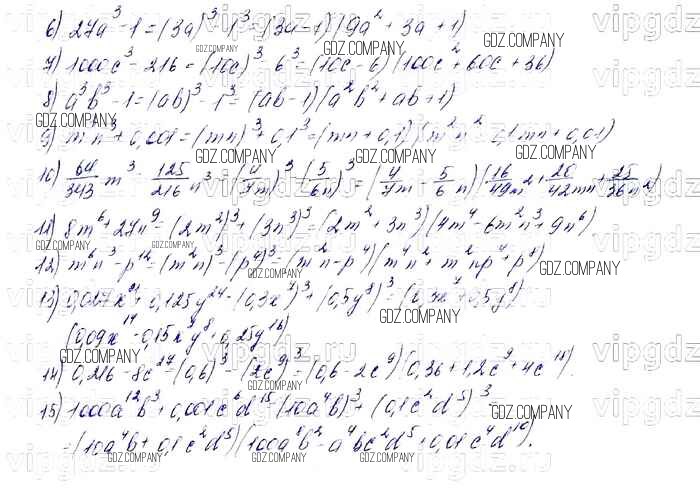 6) 27a³ - 1 = (3a)³ - 1³ = (3a - 1)(9a² + 3a + 1)
7) 1000c³ - 216 = (10c)³ - 6³ = (10c - 6)(100c² + 60c + 36)
8) a³b³ - 1 = (ab)³ - 1³ = (ab - 1)(a²b² + ab + 1)
9) m³n³ + 0,001 = (mn)³ + 0,1³ = (mn + 0,1)(m²n² - 0,1mn + 0,01)
10) 64/343 m³ - 125/216 n³ = (4/7 m)³ - (5/6 n)³ = (4/7 m - 5/6 n)(16/49 m² + 20/42 mn + 25/36 n²)
11) 8m⁶ + 27n⁹ = (2m²)³ + (3n³)³ = (2m² + 3n³)(4m⁴ - 6m²n³ + 9n⁶)
12) m⁶n³ - p¹² = (m²n)³ - (p⁴)³ = (m²n - p⁴)(m⁴n² + m²np⁴ + p⁸)
13) 0,027x²¹ + 0,125y²⁴ = (0,3x⁷)³ + (0,5y⁸)³ = (0,3x⁷ + 0,5y⁸)
(0,09x¹⁴ - 0,15x⁷y⁸ + 0,25y¹⁶)
14) 0,216 - 8c²⁷ = (0,6)³ - (2c⁹)³ = (0,6 - 2c⁹)(0,36 + 1,2c⁹ + 4c¹⁸)
15) 1000a¹²b³ + 0,001c⁶d¹⁵ = (10a⁴b)³ + (0,1c²d⁵)³ =
= (10a⁴b + 0,1c²d⁵)(100a⁸b² - a⁴bc²d⁵ + 0,01c⁴d¹⁰).
GDZ.COMPANY
vipgdz